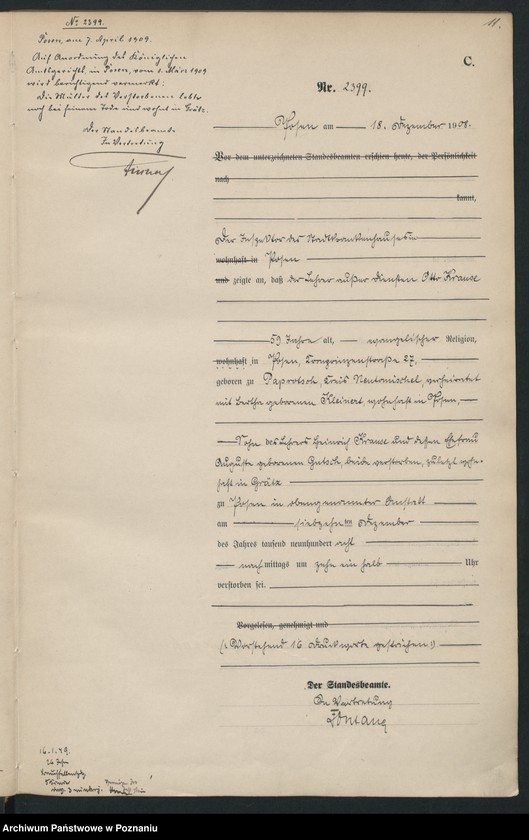 No 2399.
Posen, am 7. April 1909.
Auf Anordnung des Königlichen
Amtsgerichts in Posen, vom 1. März 1909
wird berichtigend vermerkt:
Die Mutter des Verstorbenen lebte
noch bei seinem Tode und wohnt in Grätz.
Der Standesbeamte
In Vertretung
11.
C.
Nr. 2399.
Posen am 18. Dezember 1908.
Vor dem unterzeichneten Standesbeamten erschien heute, der Persönlichkeit
nach
kannt,
Der Inspektor des Stadtkrankenhauses
wohnhaft in Posen
und zeigte an, daß der Lehrer außer Diensten Otto Krause
59 Jahre alt, evangelischer Religion,
wohnhaft in Posen, Kronprinzenstraße 27,
geboren zu Paprotsch, Kreis Neutomischel, verheiratet
mit Bertha geborenen Kleinert wohnhaft in Posen,
Sohn des Lehrers Heinrich Krause und dessen Ehefrau
Auguste geborenen Gutsch, beide verstorben, zuletzt wohn-
haft in Grätz
zu Posen in obengenannter Anstalt
am siebzehnten Dezember
des Jahres tausend neunhundert acht
nachmittags um zehn ein halb Uhr
verstorben sei.
Vorgelesen, genehmigt und
(: Vorstehend 16 Druckworte gestrichen :)
Der Standesbeamte.
In Vertretung
16.1.39.
Archiwum Państwowe w Poznaniu